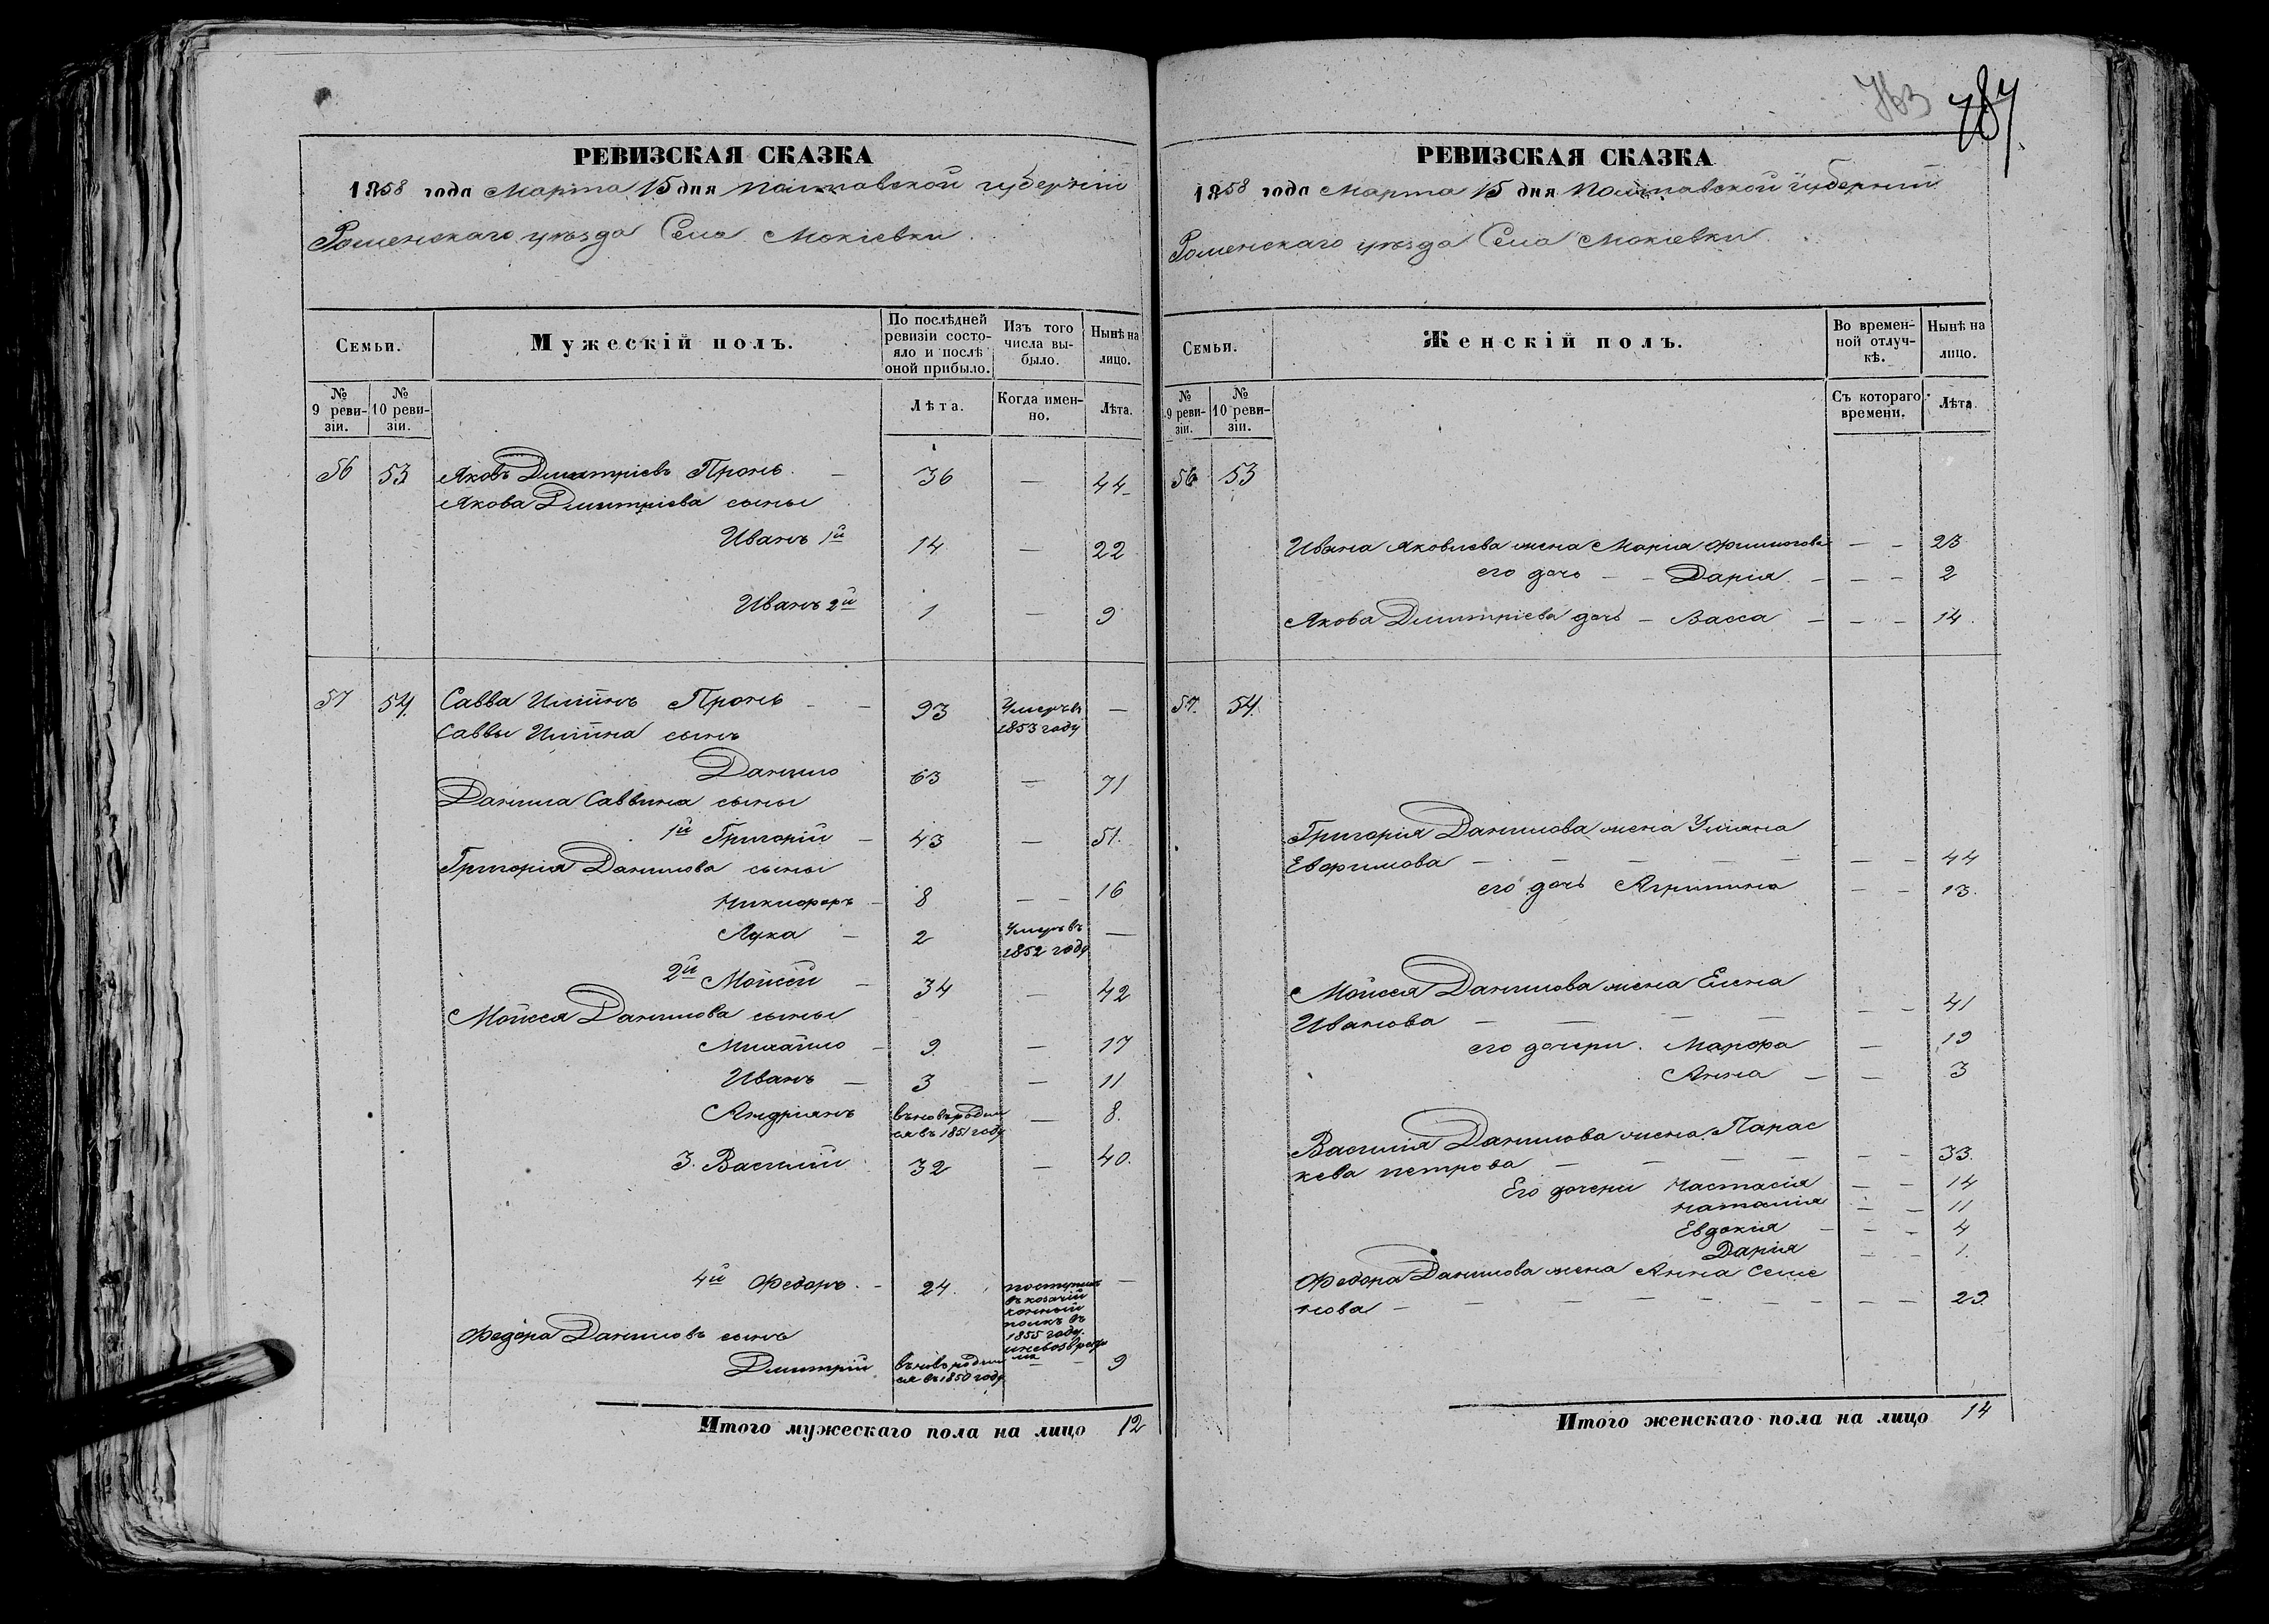 763 787.
РЕВИЗСКАЯ СКАЗКА
1858 года Марта 15 дня Полтавской губерніи
Роменскаго уѣзда Села Мокіевки.
Семьи.
Мужескій полъ.
По послѣдней ревизіи состояло и послѣ оной прибыло.
Изъ того числа выбыло.
Нынѣ на лицо.
№ 9 ревизіи.
№ 10 ревизіи.
Лѣта.
Когда именно.
Лѣта.
56 53 Яковъ Дмитріевъ Пронь. — 36 — 44
Якова Дмитріева сыны
Иванъ 1й 14 — 22
Иванъ 2й 1 — 9
57 54. Савва Ильинъ Пронь — — 93 Умеръ въ 1853 году —
Саввы Ильина сынъ
Данило 63 — 71
Данила Саввина сыны
1й Григорій — 43 — 51.
Григорія Данилова сыны
Никифоръ — 8 — — 16
Лука — 2 Умеръ въ 1852 году —
2й Мойсей — 34 — 42
Мойсея Данилова сыны
Михайло — 9. — 17
Иванъ — 3 — 11
Андріянъ вьновь родился въ 1851 году — 8.
3. Василій 32 — 40.
4й Федоръ. — 24. поступилъ въ козачій конный полкъ въ 1855 году. —
Федора Даниловъ сынъ
Дмитрій вьновь родился въ 1850 году — — 9
Итого мужескаго пола на лицо 12
РЕВИЗСКАЯ СКАЗКА
1858 года Марта 15 дня Полтавской губерніи
Роменскаго уѣзда Села Мокіевки.
Семьи.
Женскій полъ.
Во временной отлучкѣ.
Нынѣ на лицо.
№ 9 ревизіи.
№ 10 ревизіи.
Съ котораго времени.
Лѣта.
56 53
Ивана Яковлева жена Марія Филипова — — 23
его дочь — — Дарія — — — 2
Якова Дмитріева дочь — Васса — — — 14.
57. 54.
Григорія Данилова жена Уліяна
Евфимова — — — — — — — 44
его дочь Агрипина — — 13.
Мойсея Данилова жена Елена
Иванова — — — — — — 41
его дочери. Марфа — 19
Анна — — 3
Василія Данилова жена Парас
кева Петрова — — — — — — 33.
Его дочери Настасія — — 14
Наталія — — 11
Евдокія — — — 4
Дарія — — 1.
Федора Данилова жена Анна Семе
нова — — — — — — — — — 29.
Итого женскаго пола на лицо 14